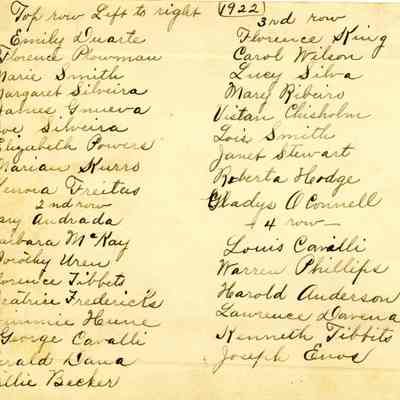 Top row Left to right
Emily Duarte
Florence Plowman
Marie Smith
Margaret Silveira
James
Joe Silveira
Elizabeth Powers
Marian Kurrs
Freitas
2nd row
Mary Andrada
Barbara McKay
Dorothy Uren
Florence Tibbits
Beatrice Frederick's
George Cavalli
Gerald Dana
Becker
1922
3rd row
Florence King
Carol Wilson
Lucy Silva
Mary Ribeiro
Chisholm
Lois Smith
Janet Stewart
Roberta Hodge
Gladys O'Connell
- 4 row -
Louis Cavalli
Warren Phillips
Harold Anderson
Lawrence
Kenneth Tibbits
Joseph Enos